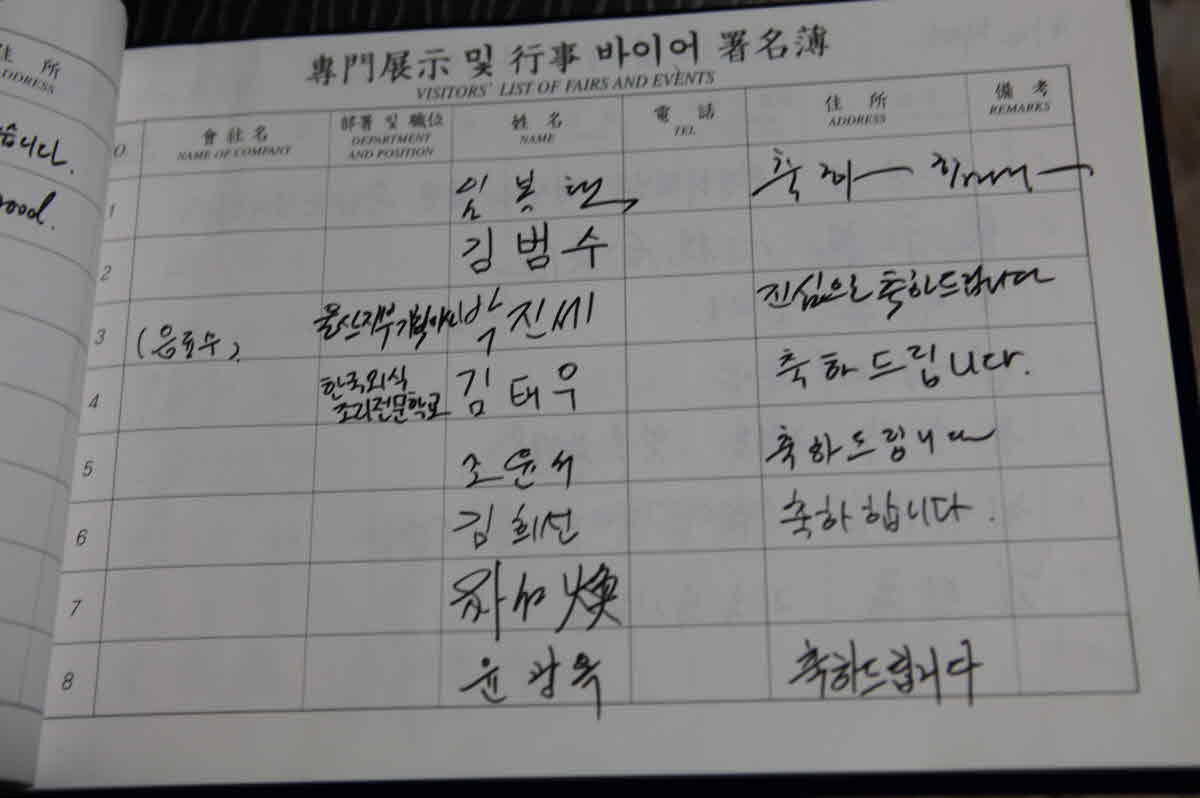 住 所
ADDRESS
습니다.
ood.
專門展示 및 行事 바이어 署名簿
VISITORS' LIST OF FAIRS AND EVENTS
O.
會社名
NAME OF COMPANY
部署 및 職位
DEPARTMENT
AND POSITION
姓 名
NAME
電 話
TEL
住 所
ADDRESS
備 考
REMARKS
1 임봉택
2 김범수
3 울산지부 박진세 진심으로 축하드립니다
4 한국외식 조리전문학교 김태우 축하드립니다.
5 조윤서 축하드립니다
6 김희선 축하합니다.
7 煥
8 윤광옥 축하드립니다